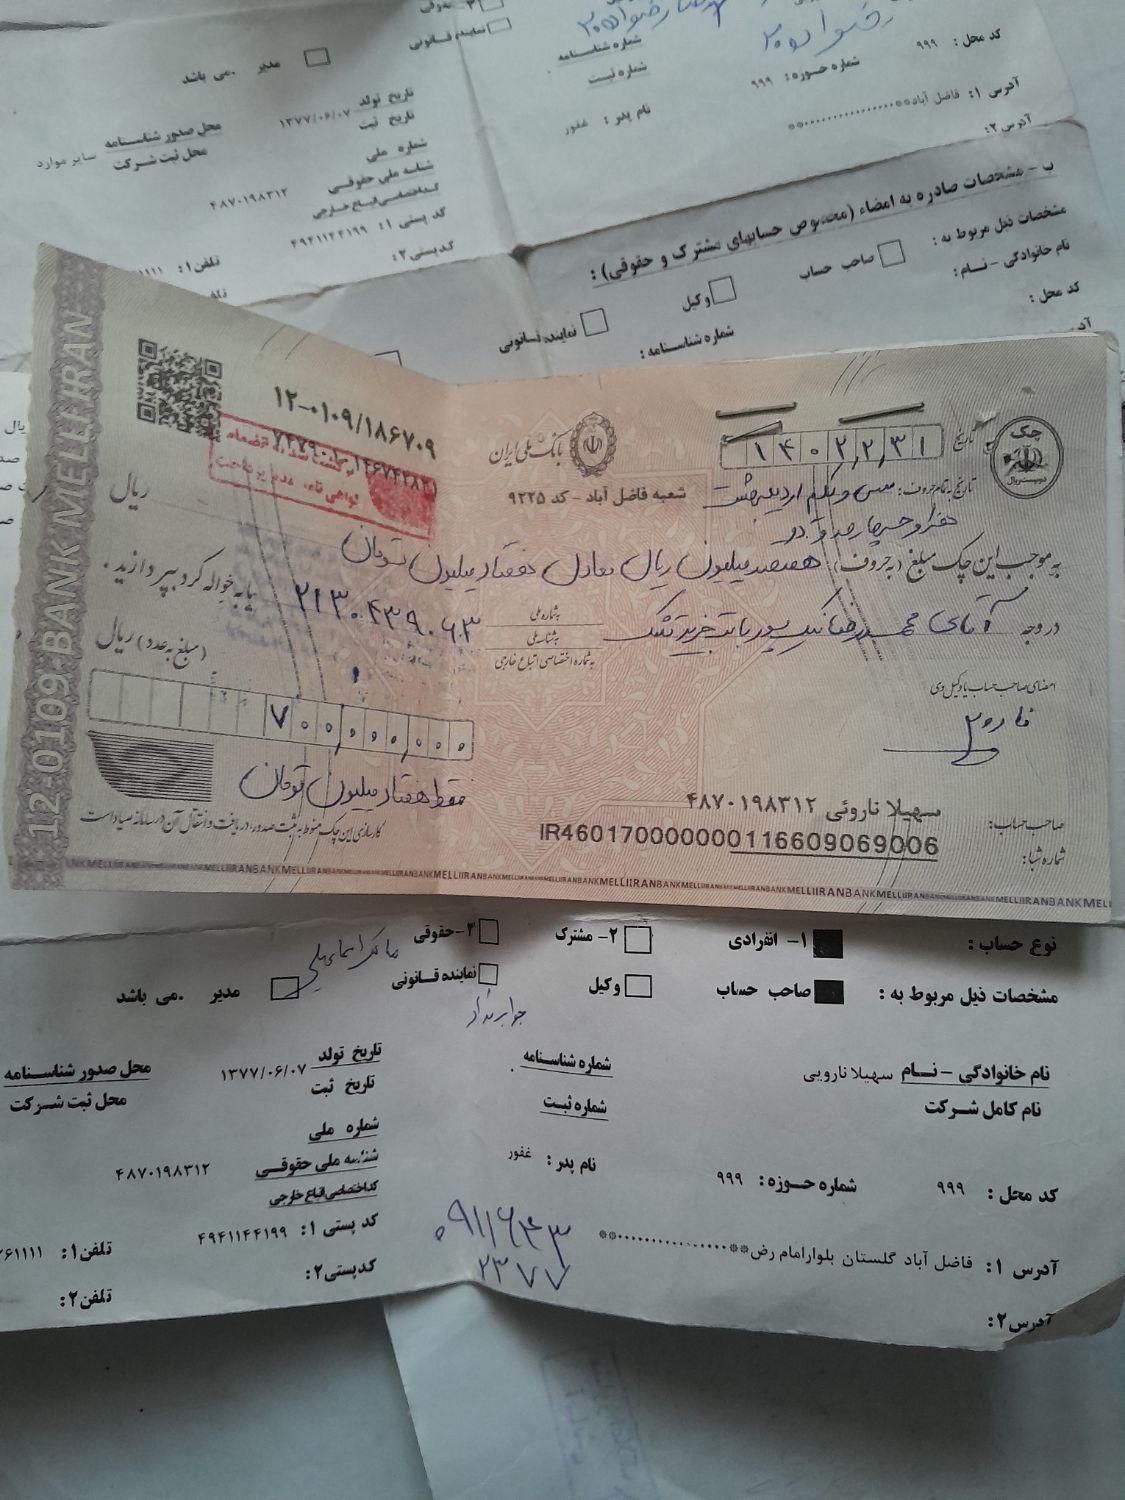 رضوانه ۲۰
کد محل : ۹۹۹
شماره حوزه : ۹۹۹
شماره شناسنامه
شماره ثبت
نماینده قانونی
مدیر
.می باشد
آدرس ۱: فاضل آباد**
نام پدر : غفور
تاریخ تولد ۱۳۷۷/۰۶/۰۷
تاریخ ثبت
محل صدور شناسنامه سایر موارد
محل ثبت شرکت
آدرس ۲:
شماره ملی
شناسه ملی حقوقی ۴۸۷۰۱۹۸۳۱۲
کداختصاصی اتباع خارجی
کد پستی ۱: ۴۹۴۱۱۴۴۱۹۹
تلفن۱:
کدپستی ۲:
ب - مشخصات صادره به امضاء (مخصوص حسابهای مشترک و حقوقی) :
مشخصات ذیل مربوط به :
صاحب حساب
وکیل
نماینده قانونی
نام خانوادگی - نام :
کد محل :
شماره شناسنامه :
12-0109 BANK MELLI IRAN
۱۲-۰۱۰۹/۱۸۶۷۰۹
بانک ملی ایران
شعبه فاضل آباد - کد ۹۲۲۵
چک
تاریخ ۱۴۰۲,۲,۳۱
تاریخ به تمام حروف: سی و یکم اردیبهشت
هزار و چهارصد و دو
به موجب این چک مبلغ (به حروف) هفتصد میلیون ریال معادل هفتاد میلیون تومان
ریال
در وجه آقای محمدرضا نیک پور بابت خرید تشک
به شماره ملی
به شناسه ملی
به شماره اختصاصی اتباع خارجی
۲۱۳۰۴۳۹۰۶۳
یا به حواله کرد بپردازید .
(مبلغ به عدد) ریال
۷۰۰,۰۰۰,۰۰۰
فقط هفتاد میلیون تومان
امضای صاحب حساب یا وکیل وی
صاحب حساب: سهیلا ناروئی ۴۸۷۰۱۹۸۳۱۲
شماره شبا: IR460170000000116609069006
کارسازی این چک منوط به ثبت صدور، دریافت و انتقال آن در سامانه صیاد است
BANKMELLIIRANBANKMELLIIRANBANKMELLIIRANBANKMELLIIRAN
نوع حساب :
۱- انفرادی
۲- مشترک
۳-حقوقی
مشخصات ذیل مربوط به :
صاحب حساب
وکیل
نماینده قانونی
مدیر
.می باشد
جواب نداد
نام خانوادگی - نام سهیلا نارویی
نام کامل شرکت
شماره شناسنامه
شماره ثبت
تاریخ تولد ۱۳۷۷/۰۶/۰۷
تاریخ ثبت
محل صدور شناسنامه
محل ثبت شرکت
کد محل : ۹۹۹
شماره حوزه : ۹۹۹
نام پدر : غفور
شماره ملی
شناسه ملی حقوقی ۴۸۷۰۱۹۸۳۱۲
کداختصاصی اتباع خارجی
آدرس ۱: فاضل آباد گلستان بلوار امام رض**
۰۹۱۱۶۴۳
۲۳۷۷
کد پستی ۱: ۴۹۴۱۱۴۴۱۹۹
تلفن۱:
آدرس۲:
کدپستی۲:
تلفن۲: